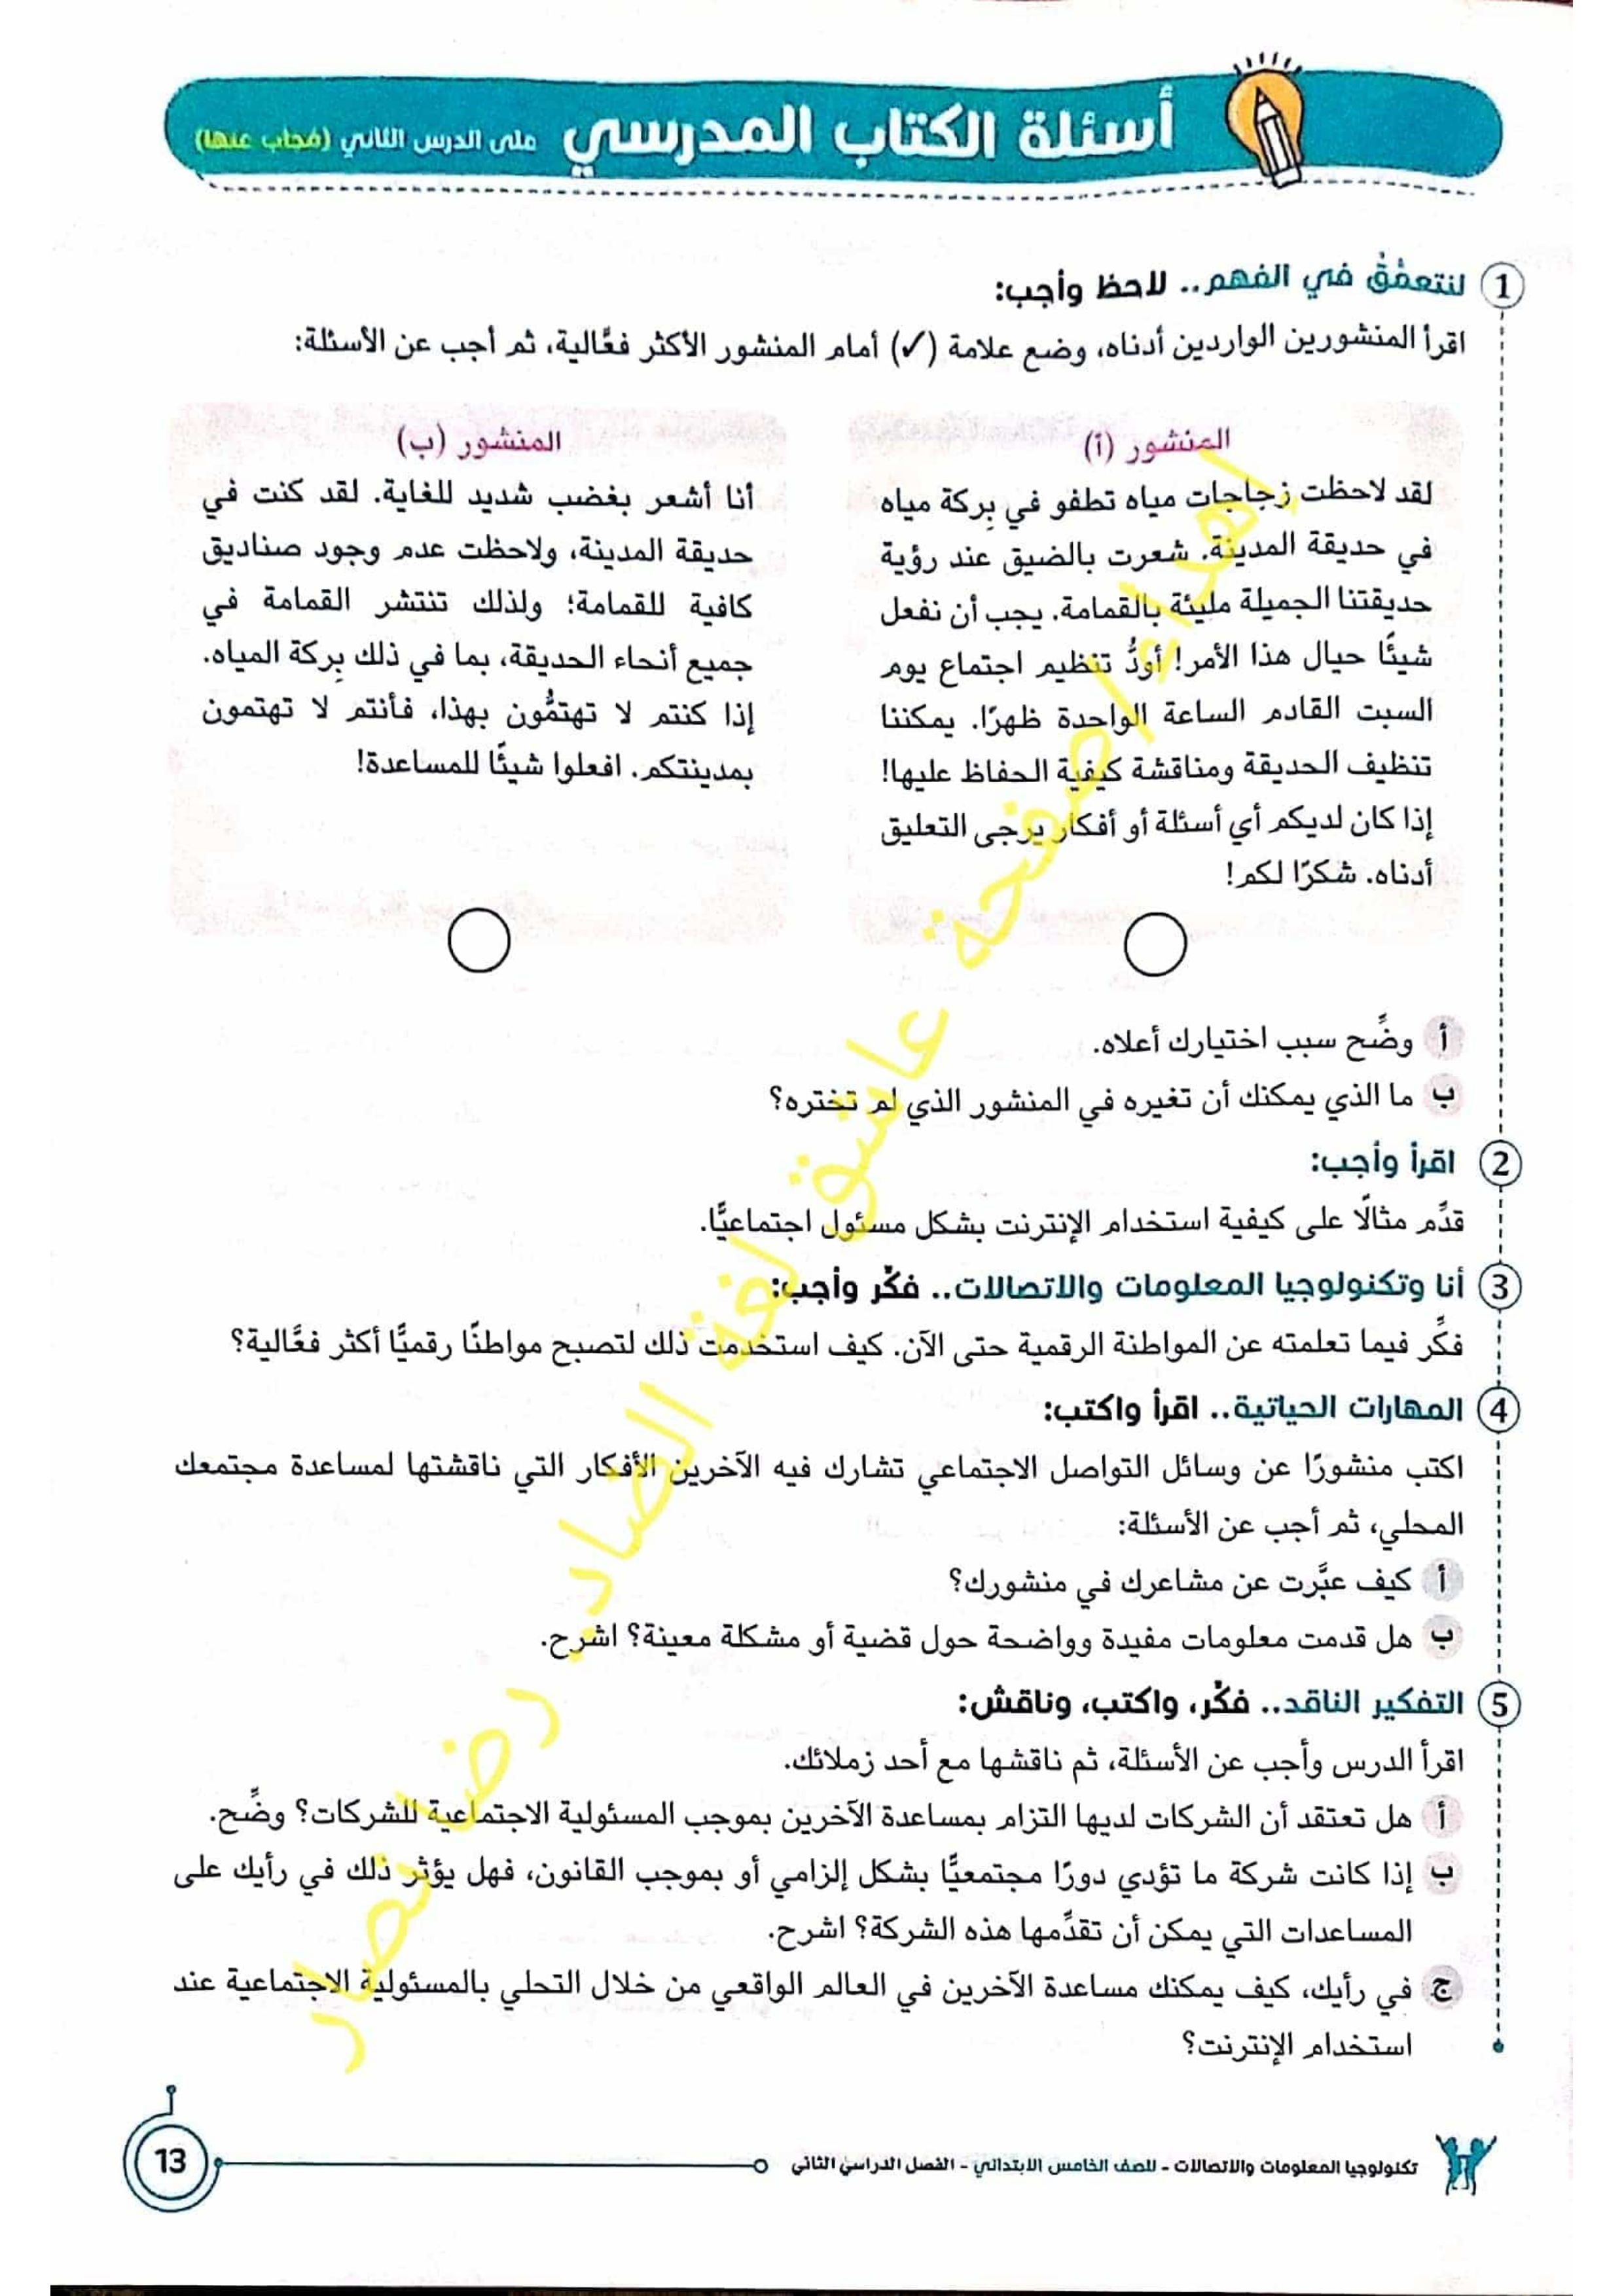 أسئلة الكتاب المدرسي على الدرس الثاني (مُجاب عنها)
1 لنتعمَّقْ في الفهم.. لاحظ وأجب:
اقرأ المنشورين الواردين أدناه، وضع علامة (✓) أمام المنشور الأكثر فعَّالية، ثم أجب عن الأسئلة:
المنشور (أ)
لقد لاحظت زجاجات مياه تطفو في بِركة مياه
في حديقة المدينة. شعرت بالضيق عند رؤية
حديقتنا الجميلة مليئة بالقمامة. يجب أن نفعل
شيئًا حيال هذا الأمر! أودُّ تنظيم اجتماع يوم
السبت القادم الساعة الواحدة ظهرًا. يمكننا
تنظيف الحديقة ومناقشة كيفية الحفاظ عليها!
إذا كان لديكم أي أسئلة أو أفكار يرجى التعليق
أدناه. شكرًا لكم!
المنشور (ب)
أنا أشعر بغضب شديد للغاية. لقد كنت في
حديقة المدينة، ولاحظت عدم وجود صناديق
كافية للقمامة؛ ولذلك تنتشر القمامة في
جميع أنحاء الحديقة، بما في ذلك بِركة المياه.
إذا كنتم لا تهتمُّون بهذا، فأنتم لا تهتمون
بمدينتكم. افعلوا شيئًا للمساعدة!
أ وضِّح سبب اختيارك أعلاه.
ب ما الذي يمكنك أن تغيره في المنشور الذي لم تختره؟
2 اقرأ وأجب:
قدِّم مثالًا على كيفية استخدام الإنترنت بشكل مسئول اجتماعيًّا.
3 أنا وتكنولوجيا المعلومات والاتصالات.. فكِّر وأجب:
فكِّر فيما تعلمته عن المواطنة الرقمية حتى الآن. كيف استخدمت ذلك لتصبح مواطنًا رقميًّا أكثر فعَّالية؟
4 المهارات الحياتية.. اقرأ واكتب:
اكتب منشورًا عن وسائل التواصل الاجتماعي تشارك فيه الآخرين الأفكار التي ناقشتها لمساعدة مجتمعك
المحلي، ثم أجب عن الأسئلة:
أ كيف عبَّرت عن مشاعرك في منشورك؟
ب هل قدمت معلومات مفيدة وواضحة حول قضية أو مشكلة معينة؟ اشرح.
5 التفكير الناقد.. فكِّر، واكتب، وناقش:
اقرأ الدرس وأجب عن الأسئلة، ثم ناقشها مع أحد زملائك.
أ هل تعتقد أن الشركات لديها التزام بمساعدة الآخرين بموجب المسئولية الاجتماعية للشركات؟ وضِّح.
ب إذا كانت شركة ما تؤدي دورًا مجتمعيًّا بشكل إلزامي أو بموجب القانون، فهل يؤثر ذلك في رأيك على
المساعدات التي يمكن أن تقدِّمها هذه الشركة؟ اشرح.
ج في رأيك، كيف يمكنك مساعدة الآخرين في العالم الواقعي من خلال التحلي بالمسئولية الاجتماعية عند
استخدام الإنترنت؟
إهداء صفحة عاشق لغة الضاد. رضا نصار
تكنولوجيا المعلومات والاتصالات - للصف الخامس الابتدائي - الفصل الدراسي الثاني
13